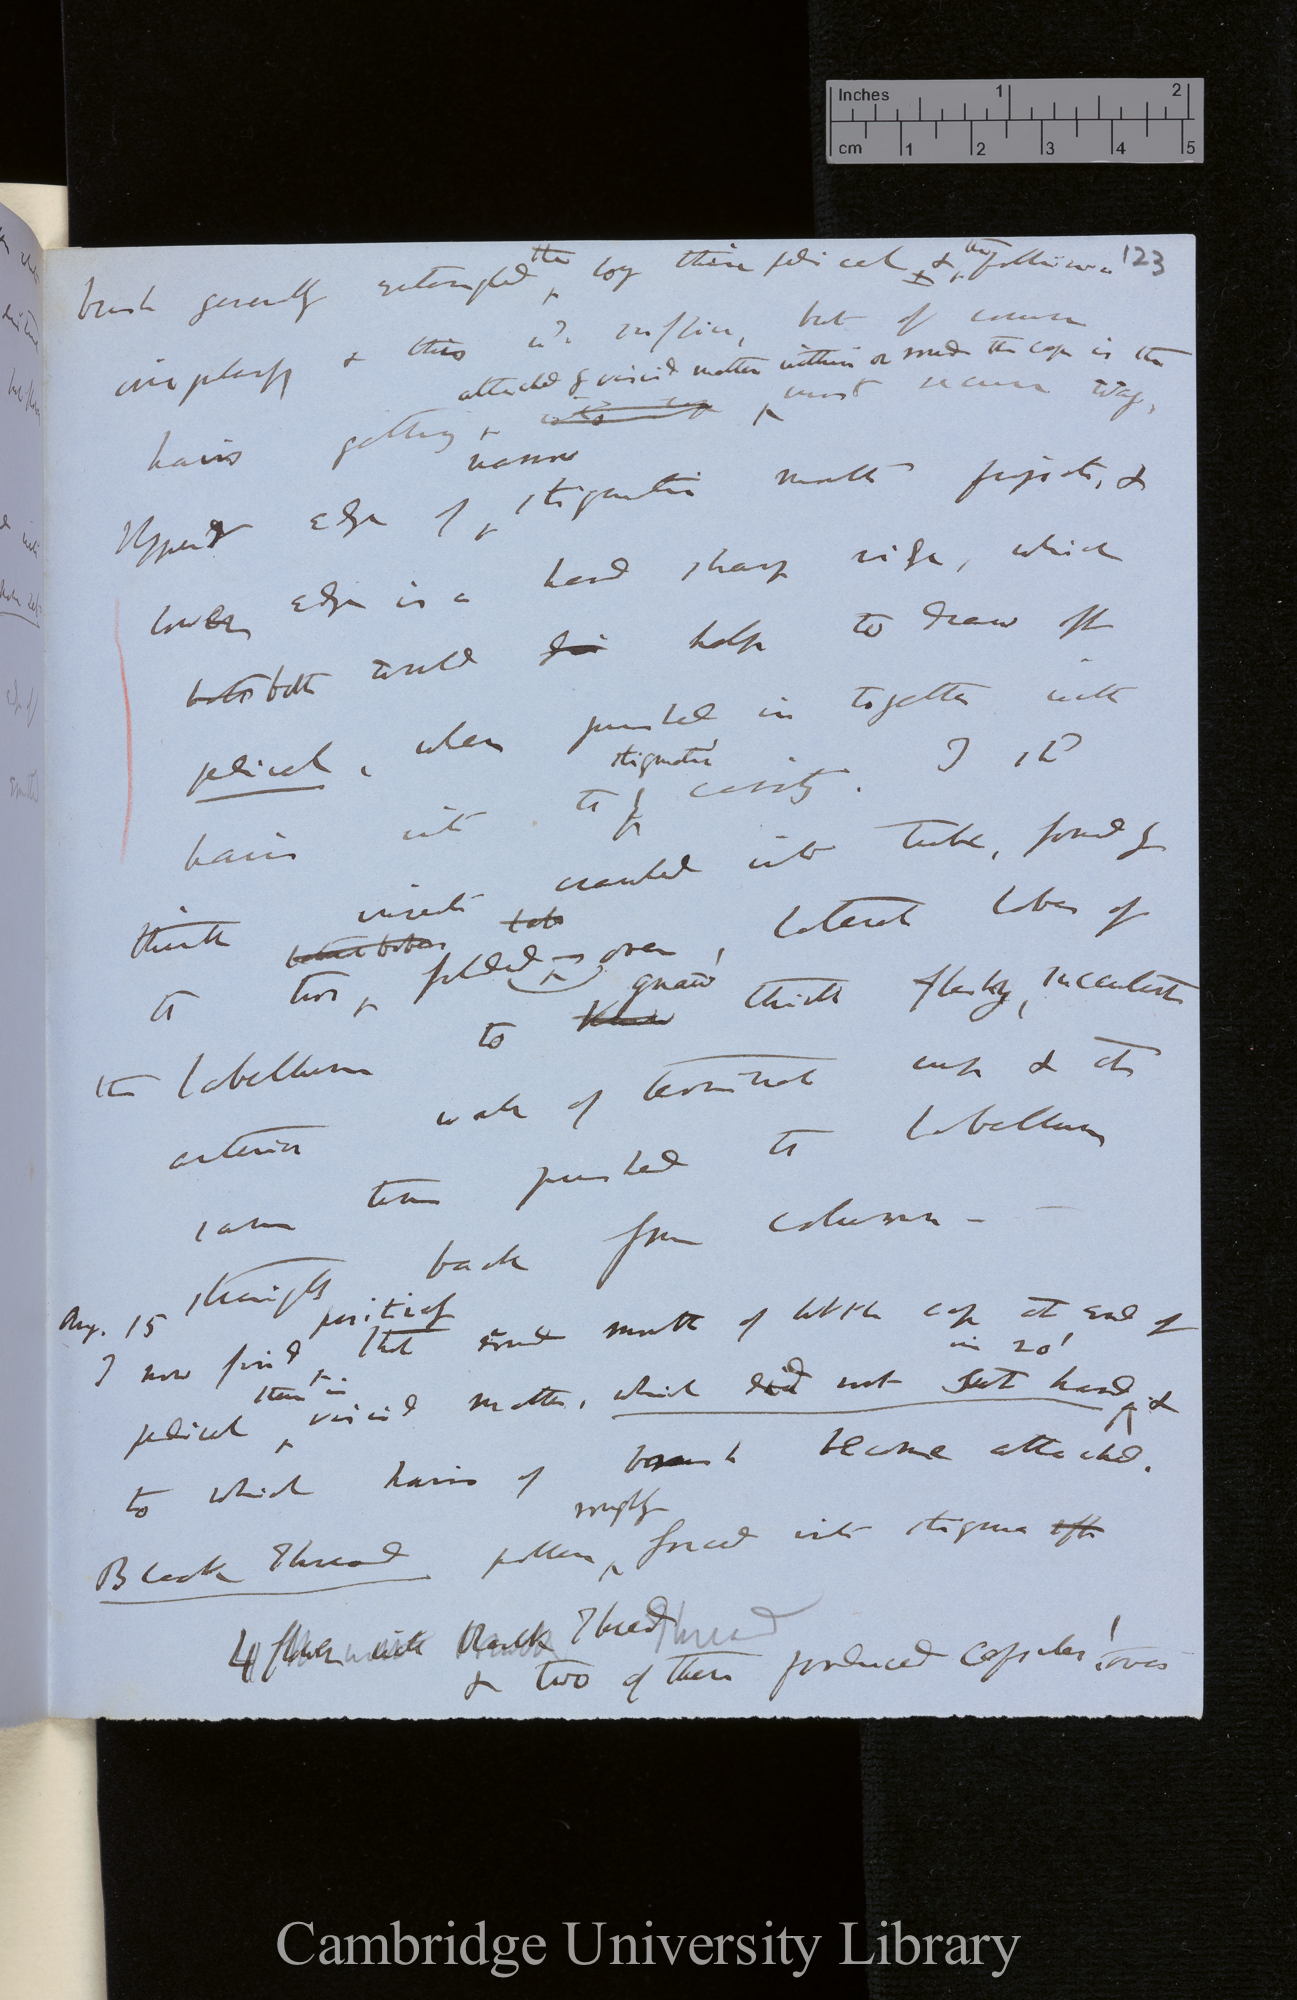 123
brush generally entangled the by their pedicel & the pollinia
inexplicably & this wd suffice, but of course
attached by viscid matter within or round the cup is the
hairs getting most secure way,
narrow
Upper edge of stigmatic mouth projects, &
lower edge is a hard sharp ridge, which
both would help to draw off
pedicel, when pushed in together with
stigmatic
hairs into the cavity. I shd
think insects crawled into tube, formed by
the two, folded over, lateral lobes of
gnaw
the labellum to thick fleshy, succulent
anterior wall of terminal cup & at the
same time pushed the labellum
straight back from column —
Aug. 15
positively
I now find that round mouth of little cup at end of
in 20'
pedicel there is viscid matter, which did not set hard &
to which hairs of brush become attached.
roughly
Black Thread pollen forced into stigma
4 flowers with Black Thread
& two of them produced capsules!
Inches 1 2
cm 1 2 3 4 5
Cambridge University Library